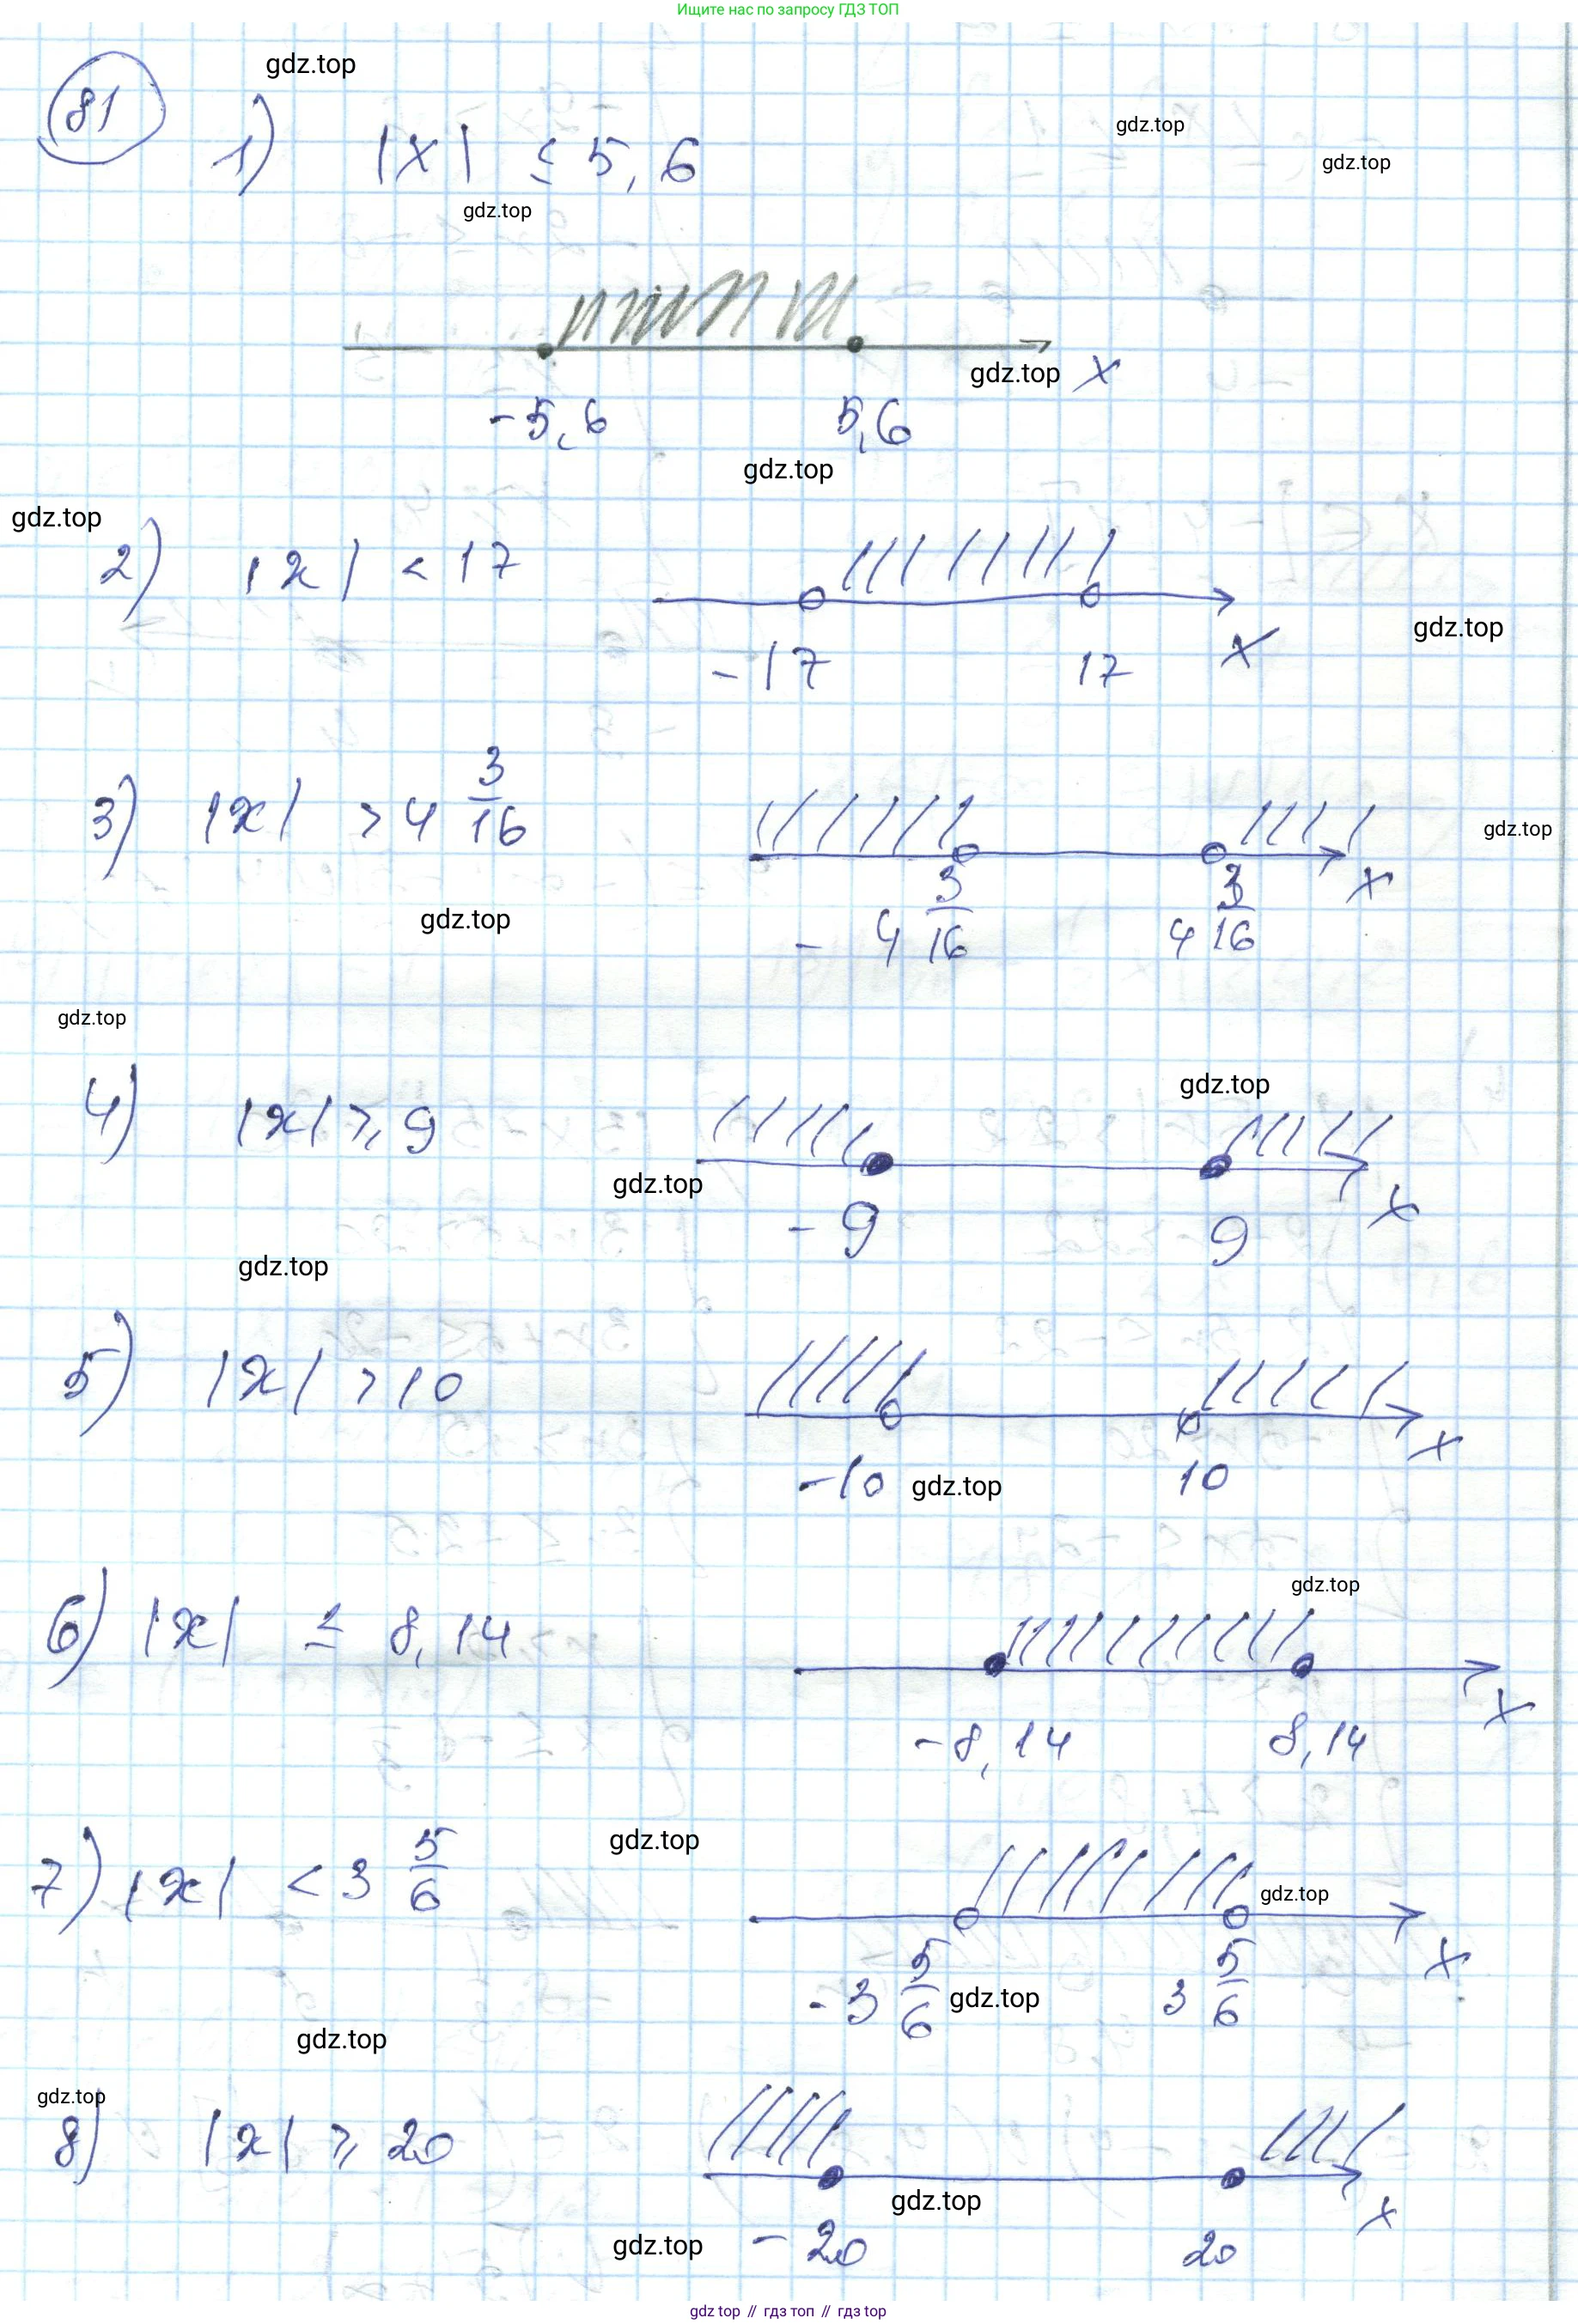 Ищите нас по запросу ГДЗ ТОП
gdz.top
81
1) |x| ≤ 5,6
gdz.top
gdz.top
gdz.top
gdz.top x
-5,6 5,6
gdz.top
gdz.top
2) |x| < 17
gdz.top
-17 17 x
3) |x| > 4 3/16
gdz.top
x
- 4 3/16 4 3/16
gdz.top
gdz.top
gdz.top
4) |x| ≥ 9
gdz.top
x
-9 9
gdz.top
5) |x| > 10
x
-10 gdz.top 10
gdz.top
6) |x| ≤ 8,14
x
-8,14 8,14
gdz.top
7) |x| < 3 5/6
gdz.top
x
-3 5/6 gdz.top 3 5/6
gdz.top
gdz.top
8) |x| ≥ 20
gdz.top
x
gdz.top -20 20
gdz top // гдз топ // гдз top